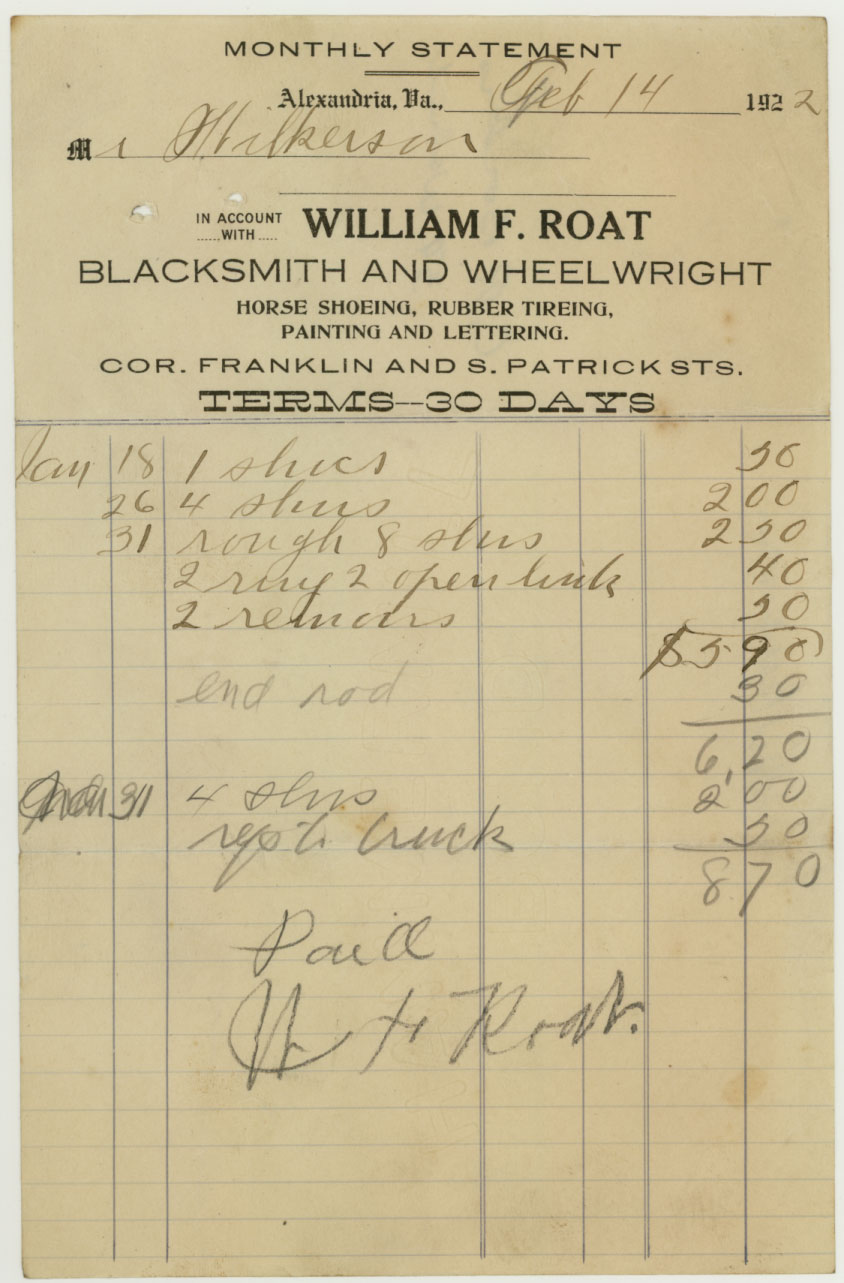 MONTHLY STATEMENT
Alexandria, Va., Feb 14 1922
Mr Wilkerson
IN ACCOUNT WITH WILLIAM F. ROAT
BLACKSMITH AND WHEELWRIGHT
HORSE SHOEING, RUBBER TIREING,
PAINTING AND LETTERING.
COR. FRANKLIN AND S. PATRICK STS.
TERMS--30 DAYS
Jan 18 1 shoes 50
26 4 shus 2 00
31 rough 8 shus 2 50
2 ring 2 open link 40
2 removs 50
$5 90
end rod 30
6,20
31 4 shus 2 00
truck 50
8 70
Paid
W F Roat.